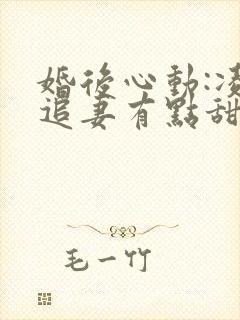 婚後心動:凌
追妻有點甜
毛一竹